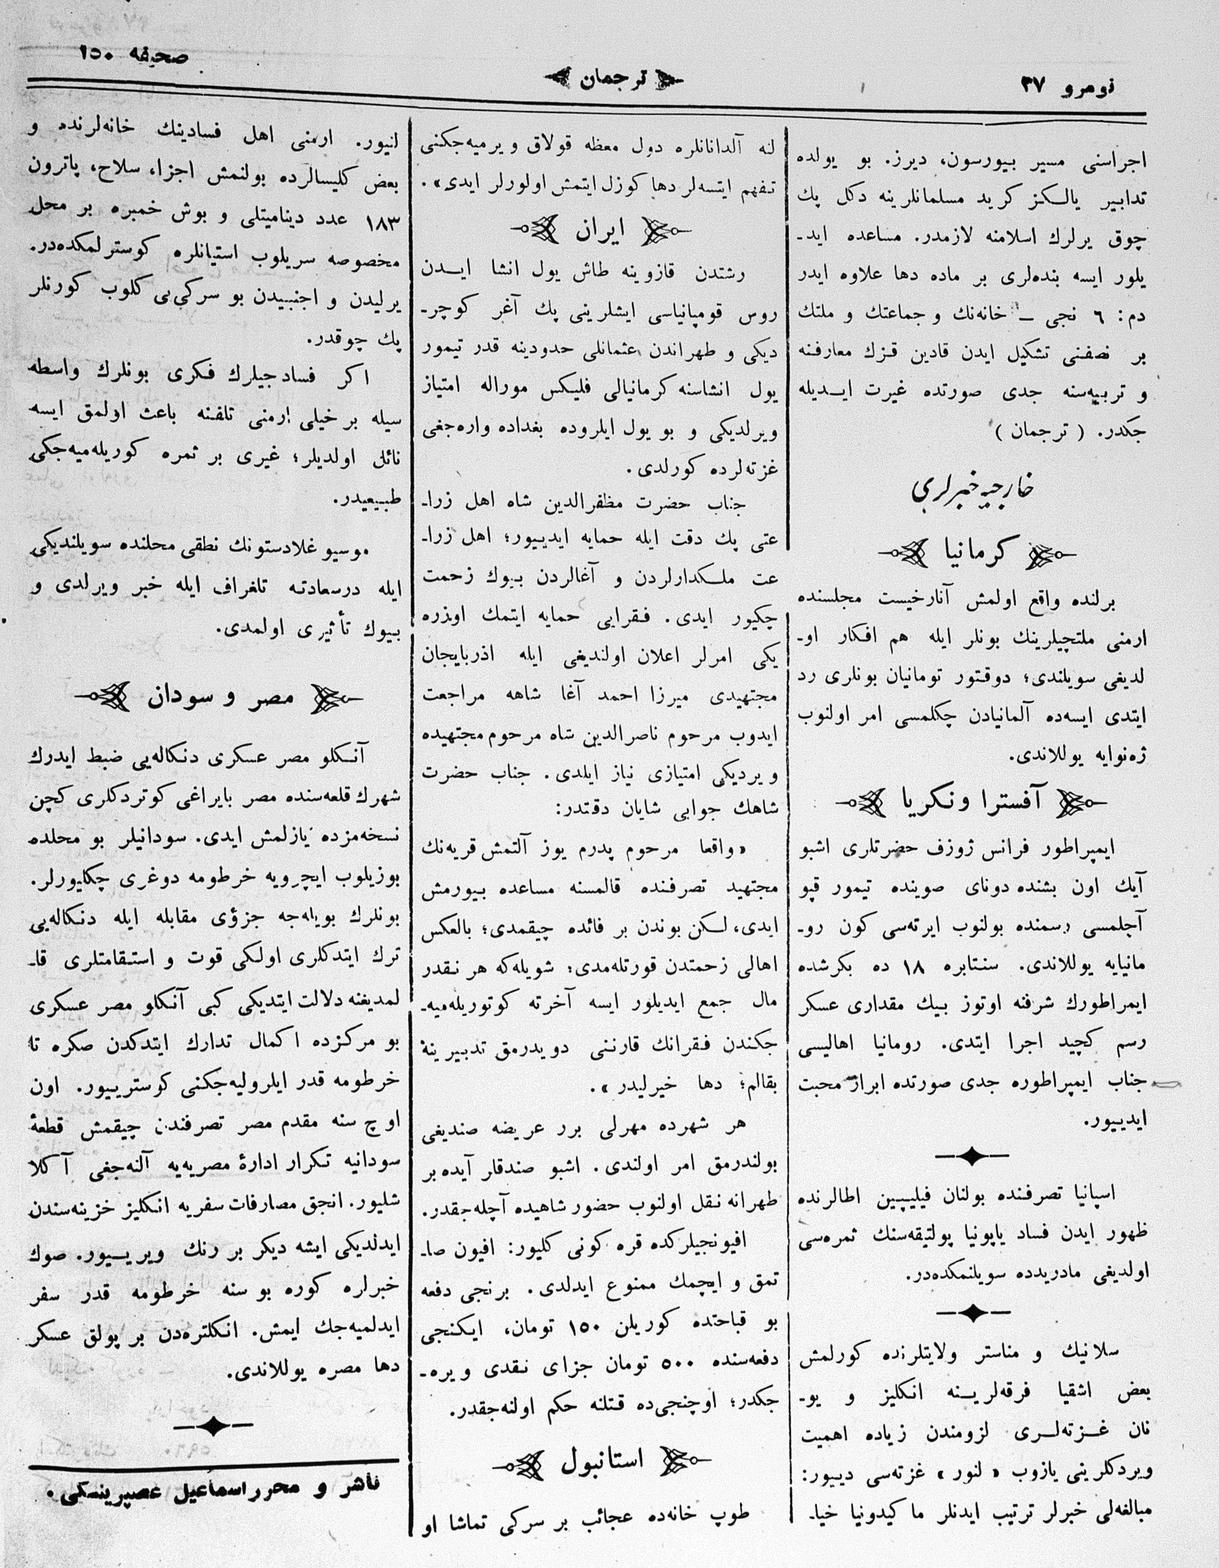 نومرو ٣٧
ترجمان
صحیفه ١٥٠
اجراسنی مسیر بیورسون، دیرز. بو یولده
تدابیر یالـکز کرید مسلمانلرینه دکل پك
چوق یرلرك اسلامنه لازمدر. مساعده ایدـ
یلور ایسه بنده‌لری بر ماده دها علاوه ایدر
دم: ٦ نجی ــ خانه‌نك و جماعتك و ملتك
بر نصفنی تشکیل ایدن قادین قزك معارفنه
و تربیه‌سنه جدی صورتده غیرت ایـدیله
جکدر. ( ترجمان )
خارجیه خبرلری
کرمانیا
برلنده واقع اولمش آنارخیست مجلسنده
ارمنی ملتجیلرینك بونلر ایله هم افـکار اوـ
لدیغی سویلندی؛ دوقتور تومانیان بونلری رد
ایتدی ایسه‌ده آلمانیادن چکلمسی امر اولنوب
ژه‌نوایه یوللاندی.
آفسترا ونکریا
ایمپراطور فرانس ژوزف حضرتلری اشبو
آیك اون بشنده دونای صوینده تیمور قپو
آچلمسی رسمنده بولنوب ایرته‌سی کون روـ
مانیایه یوللاندی. سنتابره ١٨ ده بکرشده
ایمراطورك شرفنه اوتوز بیك مقداری عسکر
رسم کچید اجرا ایتدی. رومانیا اهالیسی
جناب ایمپراطوره جدی صورتده ابراز محبت
ایدییور.
اسپانیا تصرفنده بولنان فیلیپین اطالرنده
ظهور ایدن فساد یاپونیا پولتیقه‌سنك ثمره‌سی
اولدیغی مادریدده سویلنمکده‌در.
سلانیك و مناستر ولایتلرنده کورلمش
بعض اشقیا فرقه‌لریـنه انکلیز و یوـ
نان غـزته‌لـری لزومندن زیاده اهمیت
ویردکلرینی یازوب « لنور » غزته‌سی دییور:
مبالغه‌لی خبرلر ترتیب ایدنلر ماکیدونیا خیاـ
لنه آلدانانلره دول معظمه قولاق ویرمیه‌جکنی
تـفهم ایتسه‌لر دها کوزل ایتمش اولورلر ایدی».
ایران
رشتدن قازوینه طاش یول انشا ایـدن
روس قومپانیاسی ایشلرینی پك آغر کوچرـ
دیکی و طهراندن عثمانلی حدودینه قدر تیمور
یول انشاسنه کرمانیالی فلیکس موراله امتیاز
ویرلدیکی و بو یول ایلروده بغداده واره‌جغی
غزته‌لرده کورلدی.
جناب حضرت مظفرالدین شاه اهل زراـ
عتی پك دقت ایله حمایه ایدییور؛ اهل زراـ
عت ملـکدارلردن و آغالردن بـیوك زحمت
چکیور ایدی. فـقرایی حمایه ایتمك اوذره
یکی امرلر اعلان اولندیغی ایله اذربایجان
مجتهیدی میرزا احمد آغا شاهه مراجعت
ایدوب مرحوم ناصرالدین شاه مرحوم مجتهیده
ویردیکی امتیازی نیاز ایلدی. جناب حضرت
شاهك جوابی شایان دقتدر:
«واقعا مرحوم پدرم یوز آلتمش قریه‌نك
مجتهید تصرفـنده قالمسنه مساعده بیورمش
ایدی، لـکن بوندن بر فائده چیقمدی؛ بالعکس
اهالی زحمتدن قورتله‌مدی؛ شویله‌که هر نـقدر
مال جمع ایدیلور ایسه آخرته کوتوریله‌میه‌ـ
جکندن فـقرانك قارننی دویدرمق تدبیرینهٔ
بقالم؛ دها خیرلیدر».
هر شهرده مهرلی برر عریضه صندیغی
بولندرمق امر اولندی. اشبو صندقلر آیده بر
طهرانه نـقل اولنوب حضور شاهیده آچله‌جقدر.
افیونجیلرکده قره کونی کلیور: افیون صاـ
تمق و ایچمك ممنوع ایدلدی. برنجی دفعه
بو قباحتده کوریلن ١٥٠ تومان، ایـکنجی
دفعه‌سنده ٥٠٠ تومان جزای نقدی ویره‌ـ
جکدر؛ اوچنجی‌ده قـتلنه حکم اولنه‌جقدر.
استانبول
طوپ خانه‌ده عجائب بر سرکی تماشا او
لنیور. ارمنی اهل فسادینك خانه‌لرنده و
بعض کلیسالرده بولنمش اجزا، سلاح، پاترون
١٨٣ عدد دینامیتلی و بوش خمبره بر محل
مخصوصه سریلوب استیانلره کوسترلمکده‌در.
یرلیدن و اجنبیدن بو سرکی‌یی کلوب کورنلر
پك چوقدر.
اکر فسادجیلرك فـکری بونلرك واسطه
سیله بر خیلی ارمنی تلفـنه باعث اولمق ایسه
نائل اولدیلر؛ غیری بر ثمره کوریله‌میه‌جکی
طبـیعیدر.
موسیو غلادستونك نطقی محلنده سویلندیکی
ایله درسعادته تلغراف ایله خبر ویرلدی و
بـیوك تأثیری اولمدی.
مصر و سودان
آنـکلو مصر عسکری دنکاله‌یی ضبط ایدرك
شهرك قلعه‌سنده مصر بایراغی کوتردکلری کچن
نسخه‌مزده یازلمش ایدی. سودانیلر بو محلده
بوزیلوب ایچرویه خرطومه دوغری چکلیورلر.
بونلرك بویله‌جه جزؤی مقابله ایله دنکاله‌یی
ترك ایتدکلری اولـکی قوت و استـقامتلری قاـ
لمدیغنه دلالت ایتدیکی کبی آنـکلو مصر عسکری
بو مرکزده اکمال تدارك ایتدکدن صکره تا
خرطومه قدر ایلرولیه‌جکنی کوسترییور. اون
اوچ سنه مقدم مصر تصرفندن چیقمش قطعهٔ
سودانیه تـکرار ادارهٔ مصریه‌یه آلنه‌جغی آکلا
شلیور. انجق مصارفات سفریه انکلیز خزینه‌سندن
ایدلدیکی ایشه دیکر بر رنك ویریـیور. صوك
خبرلره کوره بو سنه خرطومه قدر سفر
ایدلمیه‌جك ایمش. انـکلتره‌دن بر پولق عسکر
دها مصره یوللاندی.
ناشر و محرر اسماعیل غصپرینسکی.